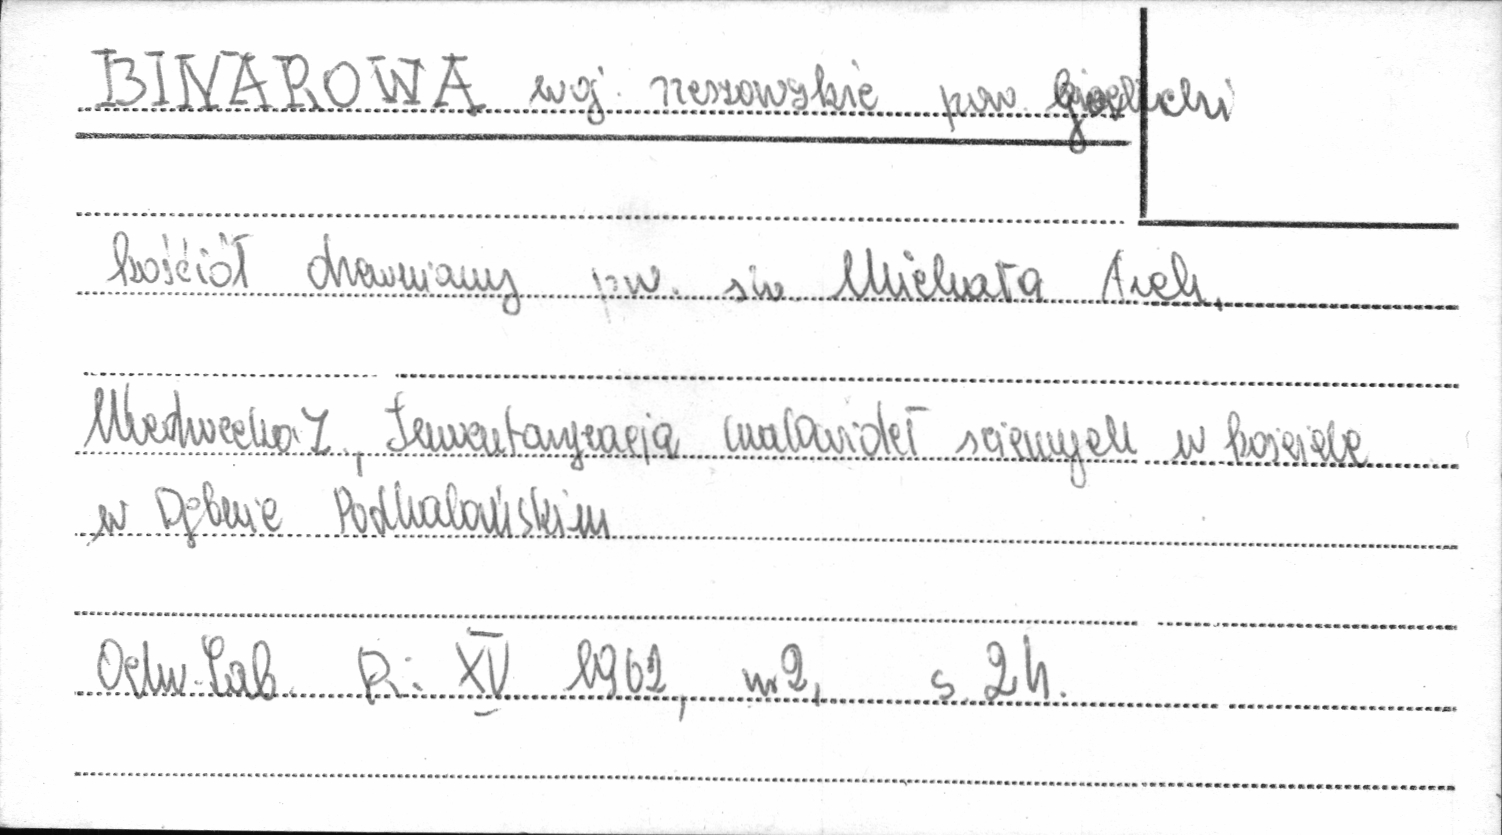 BINAROWA woj. rzeszowskie pow. Gorlicki
kościół drewniany p.w. św. Michała Arch.
Medwecka Z., Inwentaryzacja malowideł ściennych w kościele
w Dębnie Podhalańskim
Ochr. Zab. R: XV 1962, nr 2, s. 24.